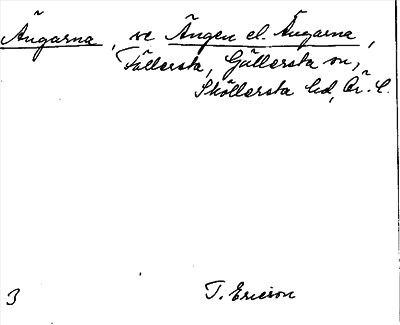 Ängarna, se Ängen el. Ängarna,
Fällersta, Gällersta sn,
Sköllersta hd, Ör. l.
3 T. Ericson